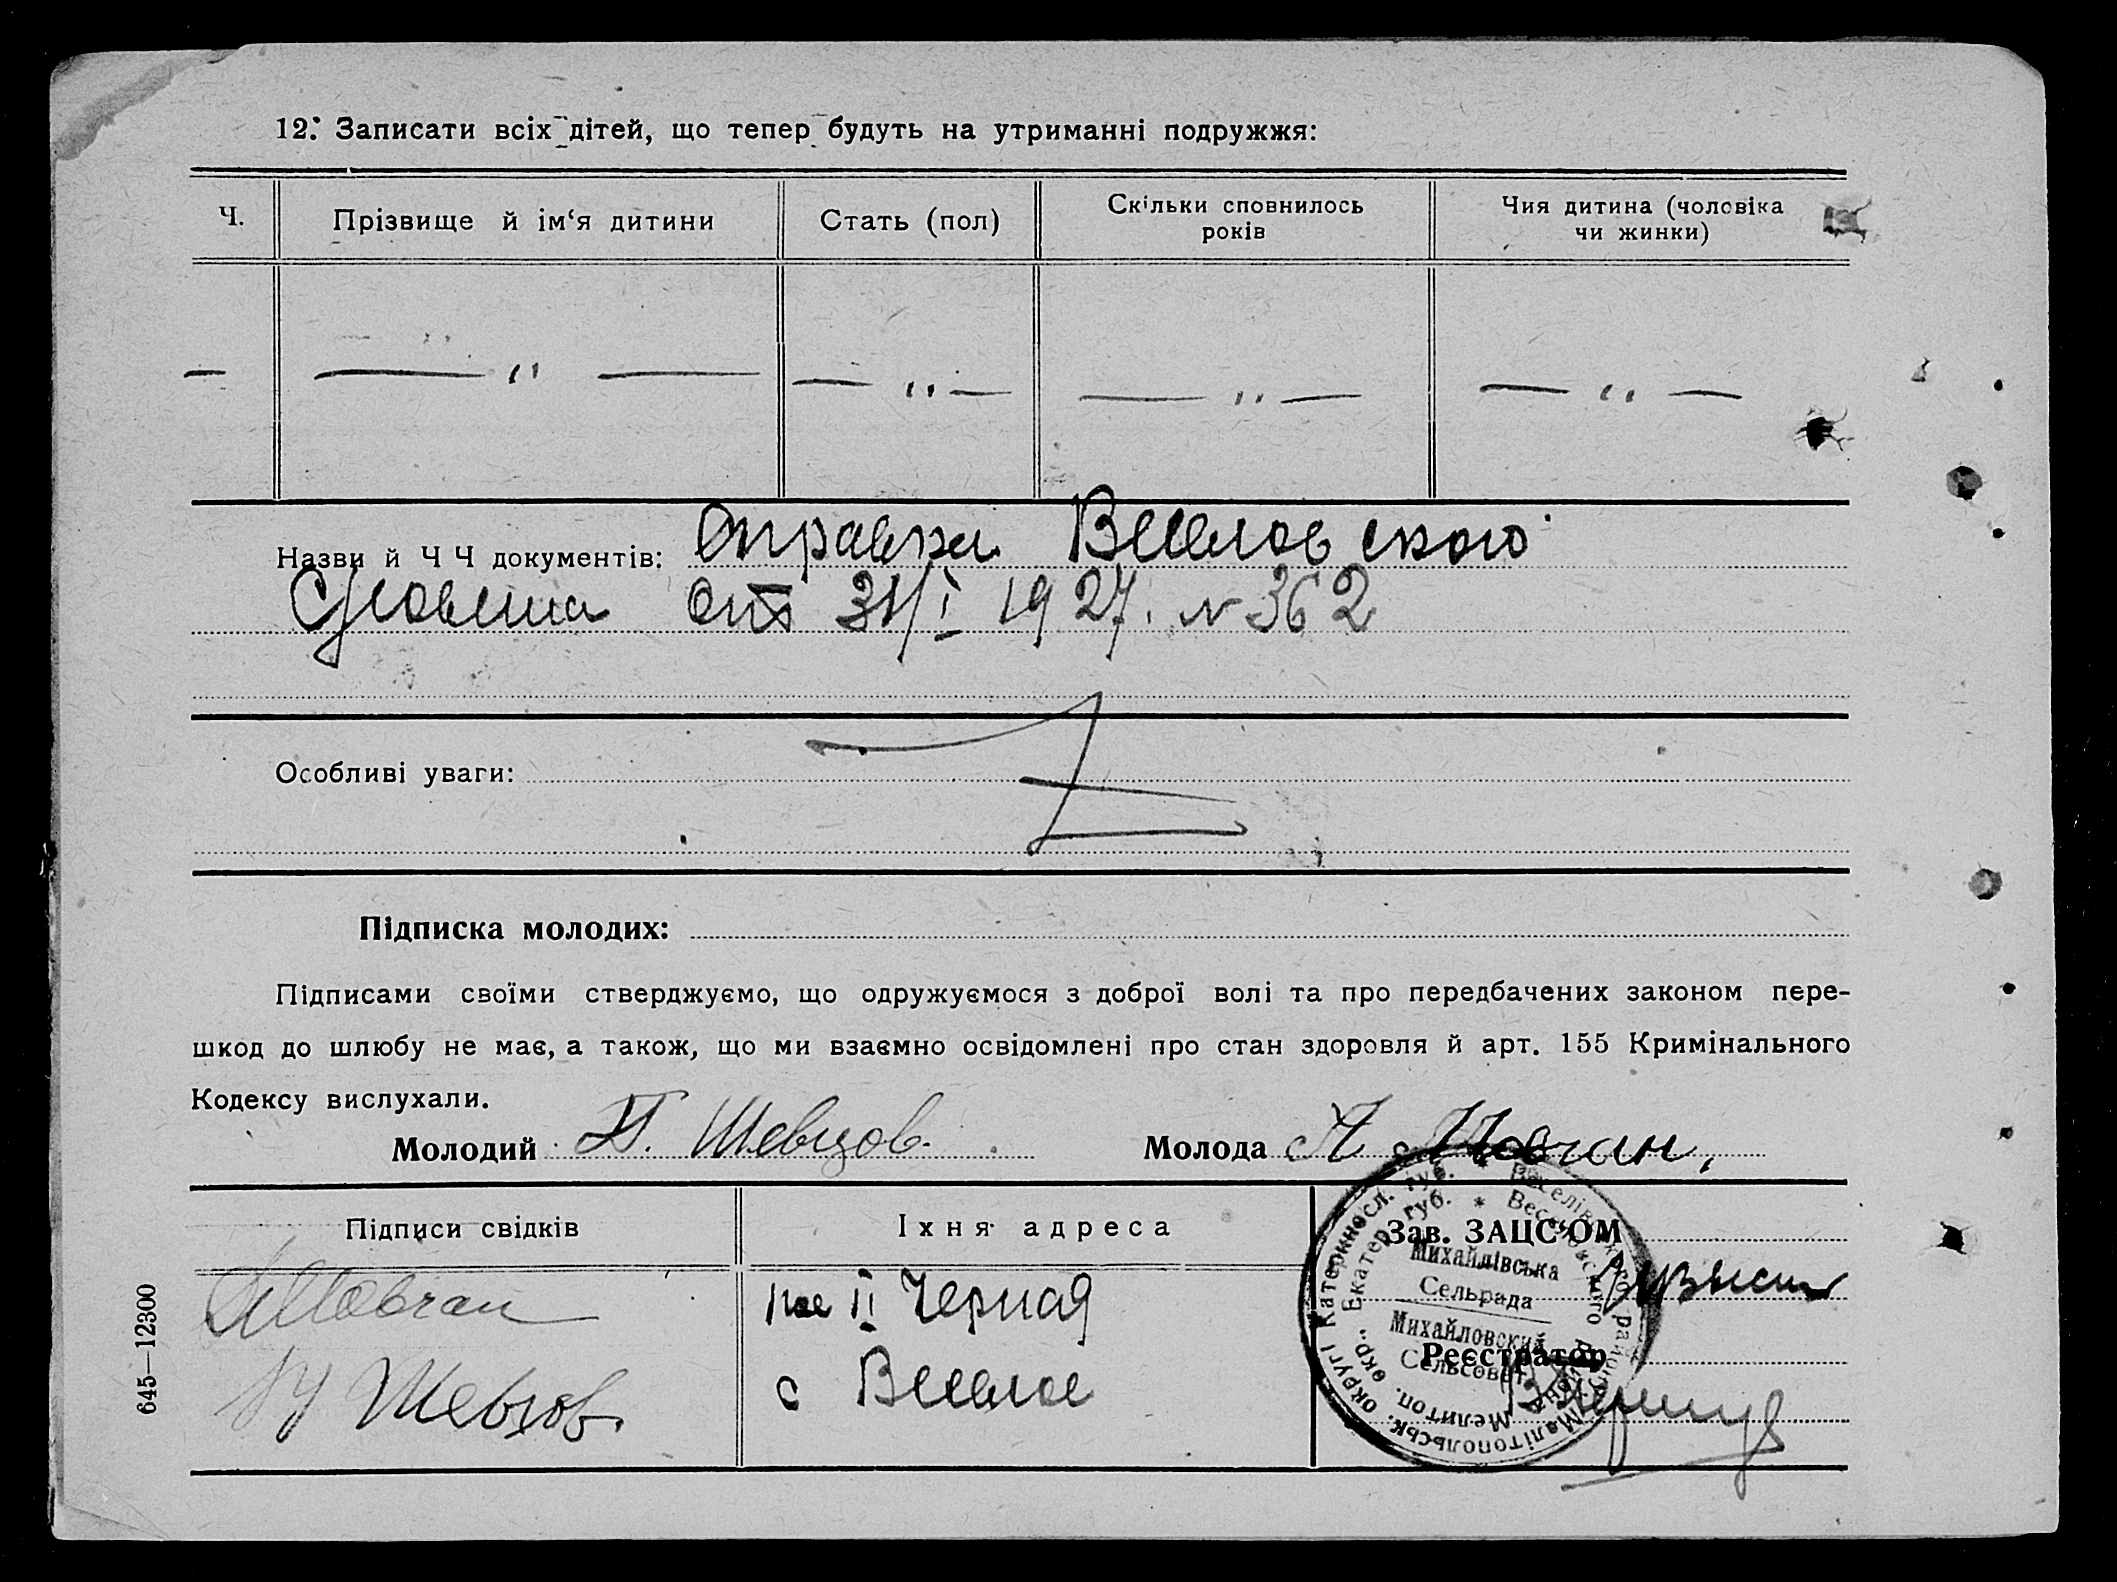 12. Записати всіх дітей, що тепер будуть на утриманні подружжя:
Ч. Прізвище й ім‘я дитини Стать (пол) Скільки сповнилось років Чия дитина (чоловіка чи жинки)
— — " — — " — — " — — " —
Назви й Ч Ч документів: Справки Веселовского
от 31/I 1927. № 362
Особливі уваги:
Підписка молодих:
Підписами своїми стверджуємо, що одружуємося з доброї волі та про передбачених законом пере-
шкод до шлюбу не має, а також, що ми взаємно освідомлені про стан здоровля й арт. 155 Кримінального
Кодексу вислухали.
Молодий П. Шевцов. Молода Мовчан,
Підписи свідків Їхня адреса Зав. ЗАЦС‘ОМ
Мовчан II Черная
Шевцов с Веселое
Реєстратор
Катериносл. губ. * Веселівського району Мелітопольськ. округі
Екатер. губ. * Веселовского района Мелитоп. окр.
Михайлівська
Сельрада
Михайловский
Сельсовет
645—12300